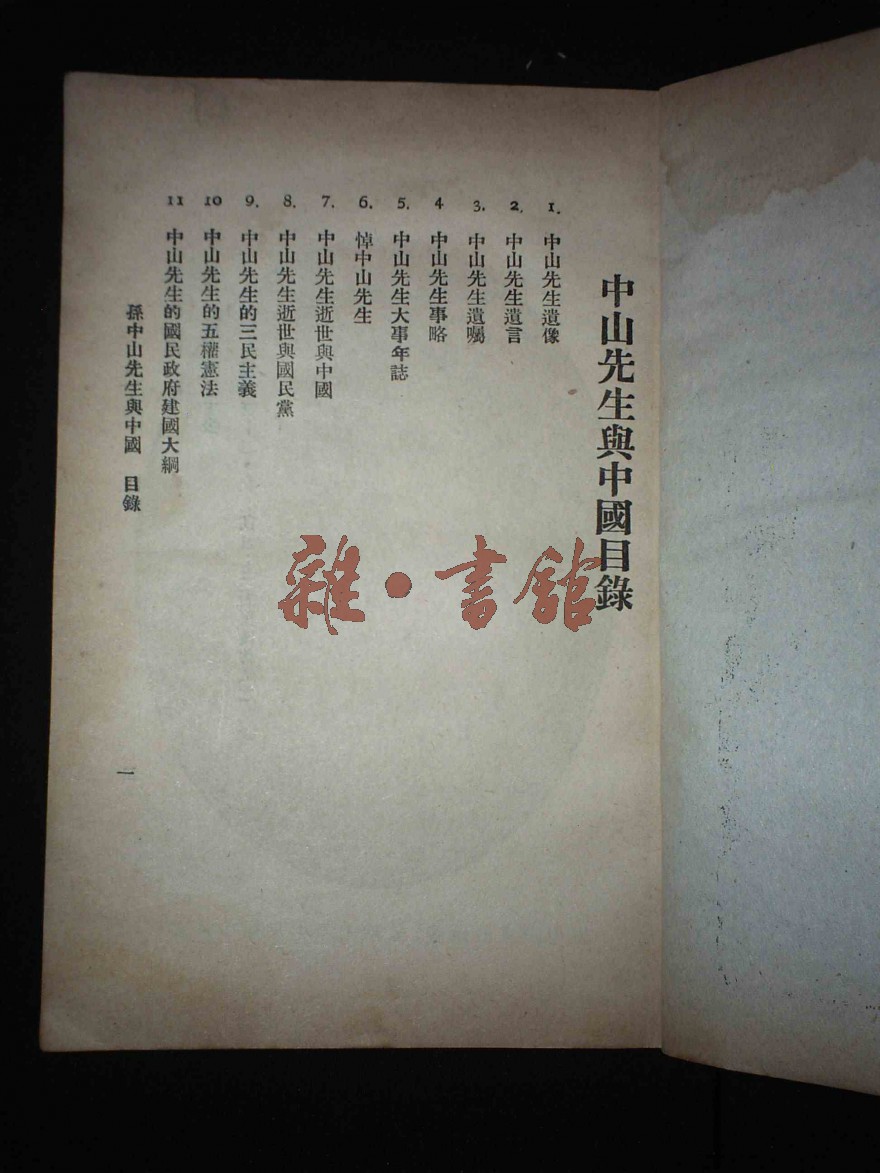 中山先生與中國目錄
1. 中山先生遺像
2. 中山先生遺言
3. 中山先生遺囑
4 中山先生事略
5. 中山先生大事年誌
6. 悼中山先生
7. 中山先生逝世與中國
8. 中山先生逝世與國民黨
9. 中山先生的三民主義
10 中山先生的五權憲法
11 中山先生的國民政府建國大綱
孫中山先生與中國 目錄
一
雜·書館